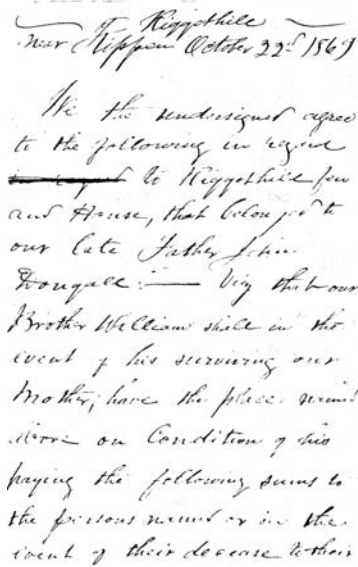 of Kiggothill
near Kippen October 22d 1869
We the undersigned agree
to the following in regard
to Kiggothill feu
and House, that belonged to
our late Father John
Dougall:— Viz that our
Brother William shall in the
event of his surviving our
Mother, have the place named
above on Condition of his
paying the following sums to
the persons named or in the
event of their decease to their